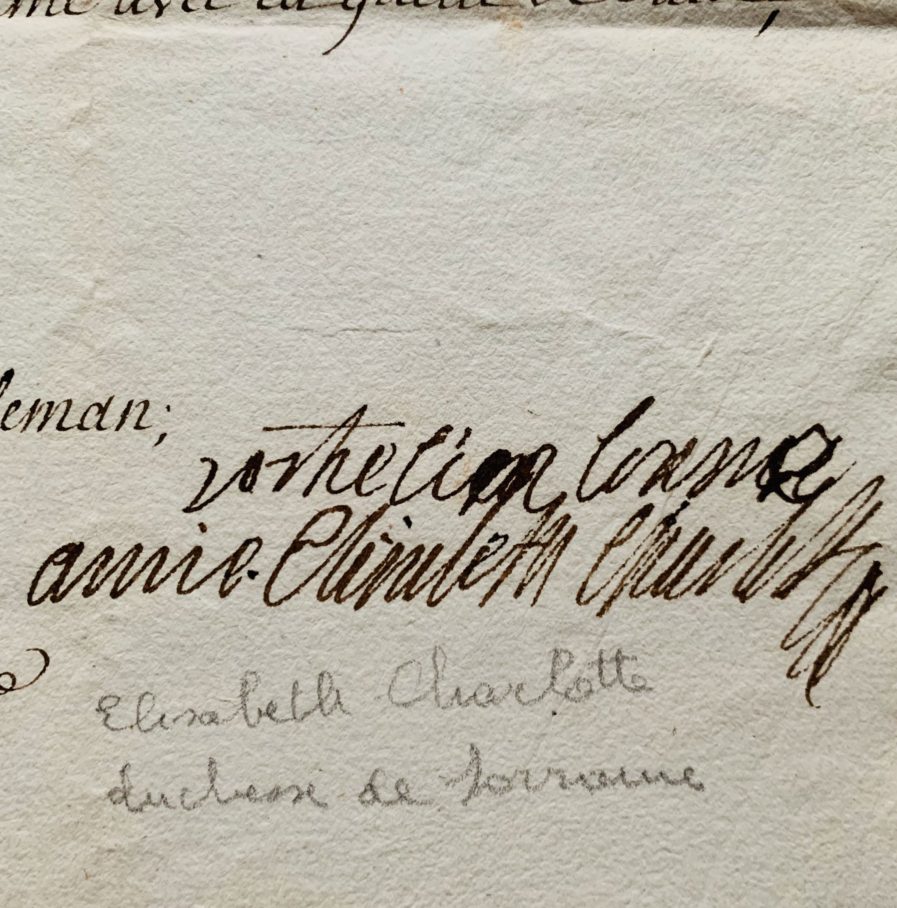 me avec la
leman;
vostre bonne
amie. Elisabeth Charlotte
Elisabeth Charlotte
duchesse de Lorraine